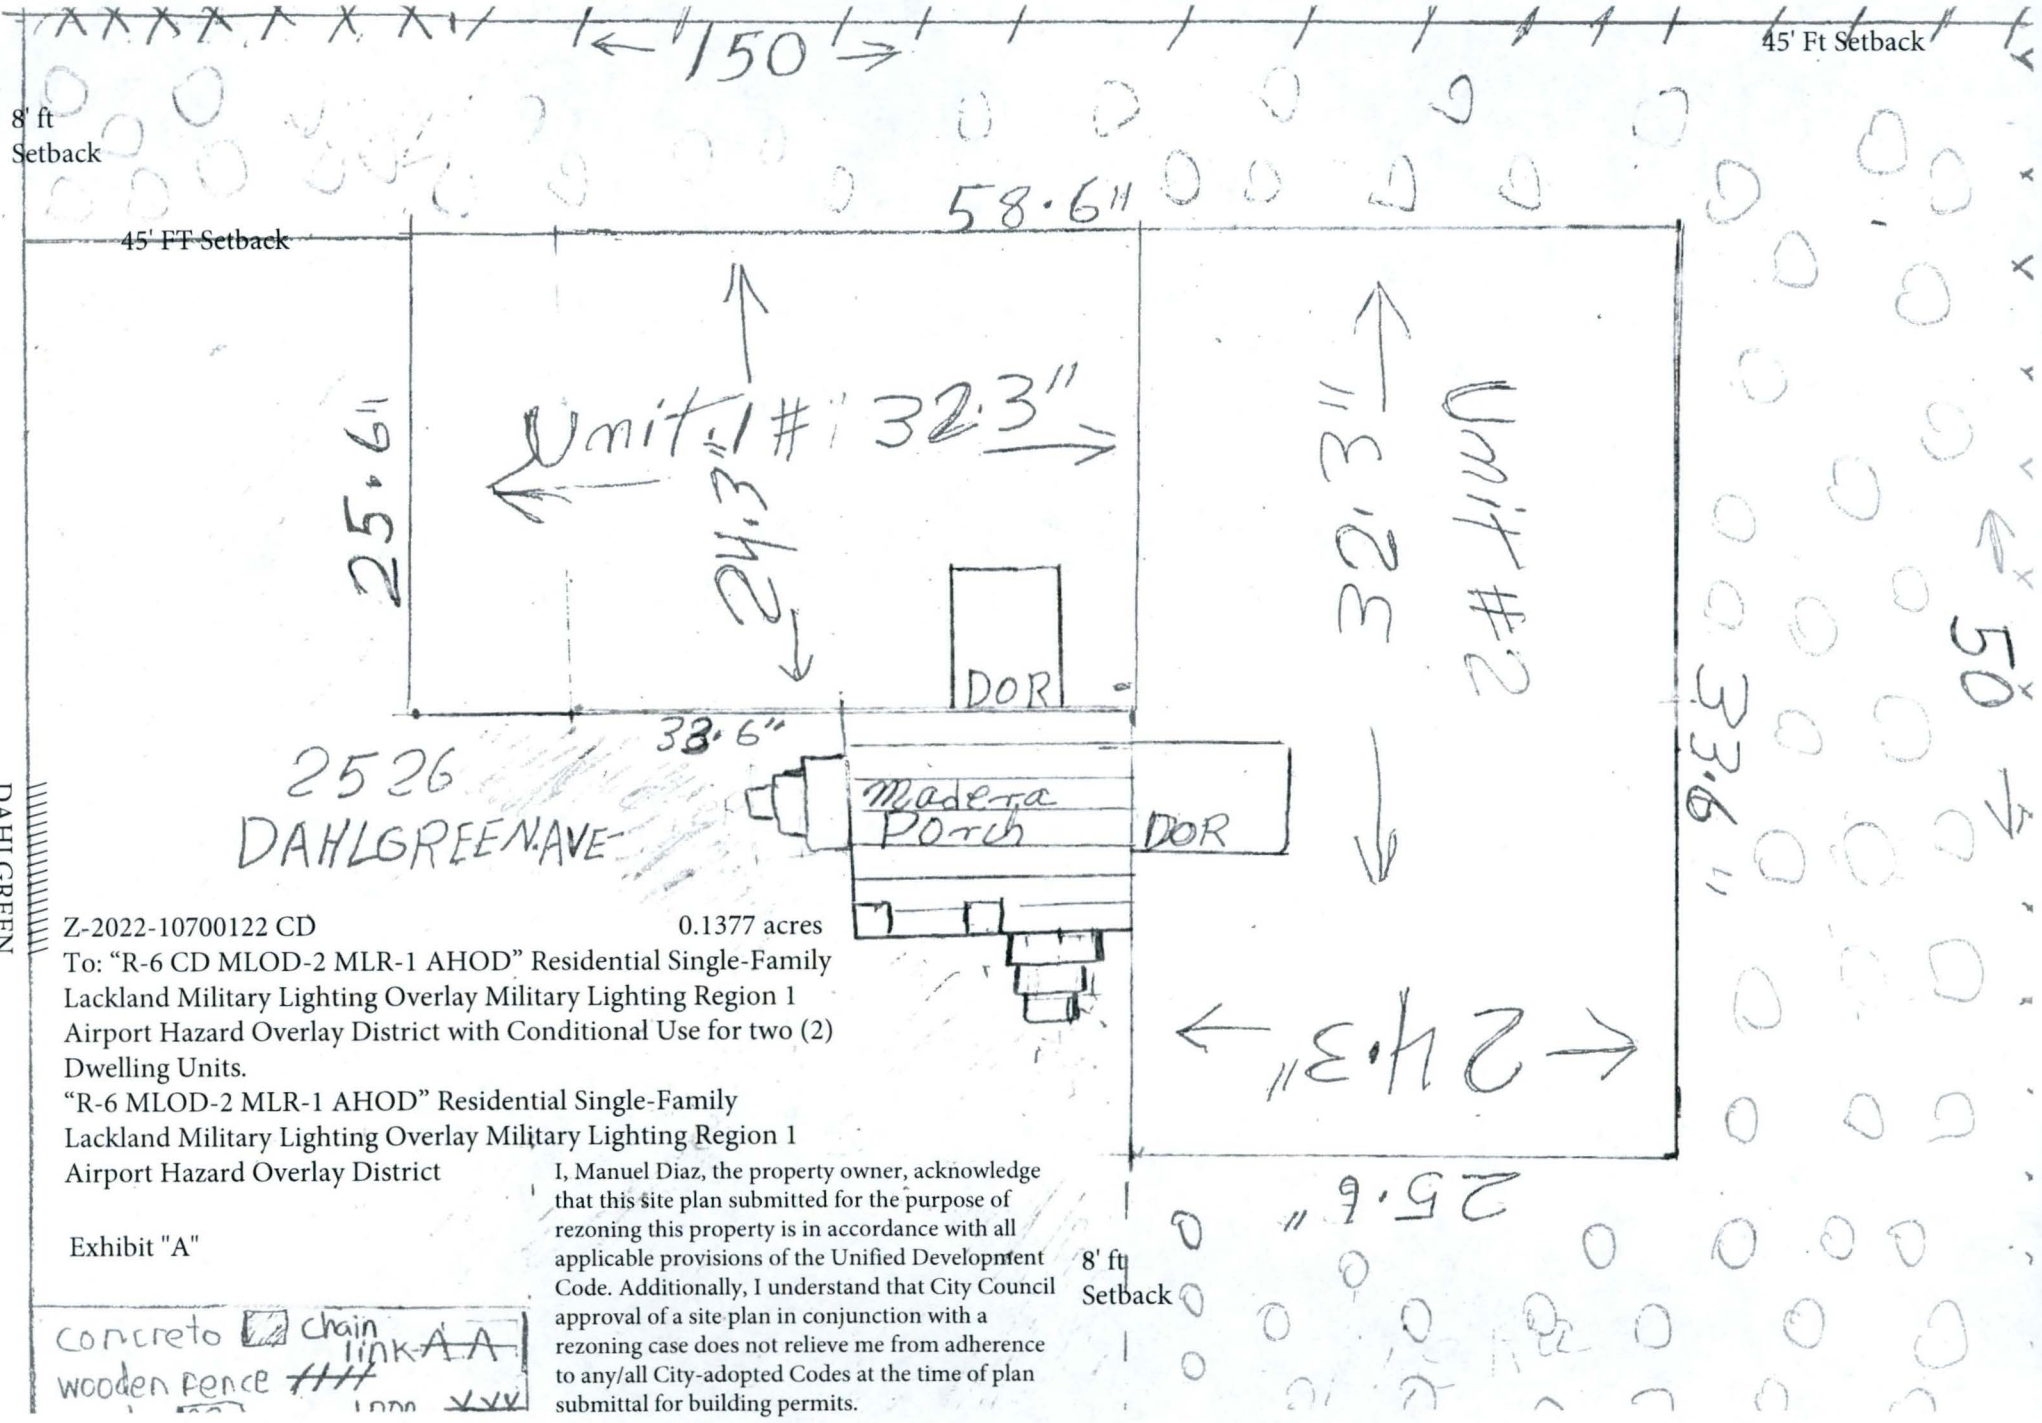 150
45' Ft Setback
8' ft
Setback
58.6"
45' FT Setback
25.6"
Unit.1 #
32.3"
24.3"
32.3"
Unit #2
50
33.6"
DOR
33.6"
2526
DAHLGREEN.AVE
madera
Porch
DOR
DAHLGREEN
Z-2022-10700122 CD 0.1377 acres
To: “R-6 CD MLOD-2 MLR-1 AHOD” Residential Single-Family
Lackland Military Lighting Overlay Military Lighting Region 1
Airport Hazard Overlay District with Conditional Use for two (2)
Dwelling Units.
“R-6 MLOD-2 MLR-1 AHOD” Residential Single-Family
Lackland Military Lighting Overlay Military Lighting Region 1
Airport Hazard Overlay District
24.3"
25.6"
Exhibit "A"
I, Manuel Diaz, the property owner, acknowledge
that this site plan submitted for the purpose of
rezoning this property is in accordance with all
applicable provisions of the Unified Development
Code. Additionally, I understand that City Council
approval of a site plan in conjunction with a
rezoning case does not relieve me from adherence
to any/all City-adopted Codes at the time of plan
submittal for building permits.
8' ft
Setback
concreto chain
link
wooden fence